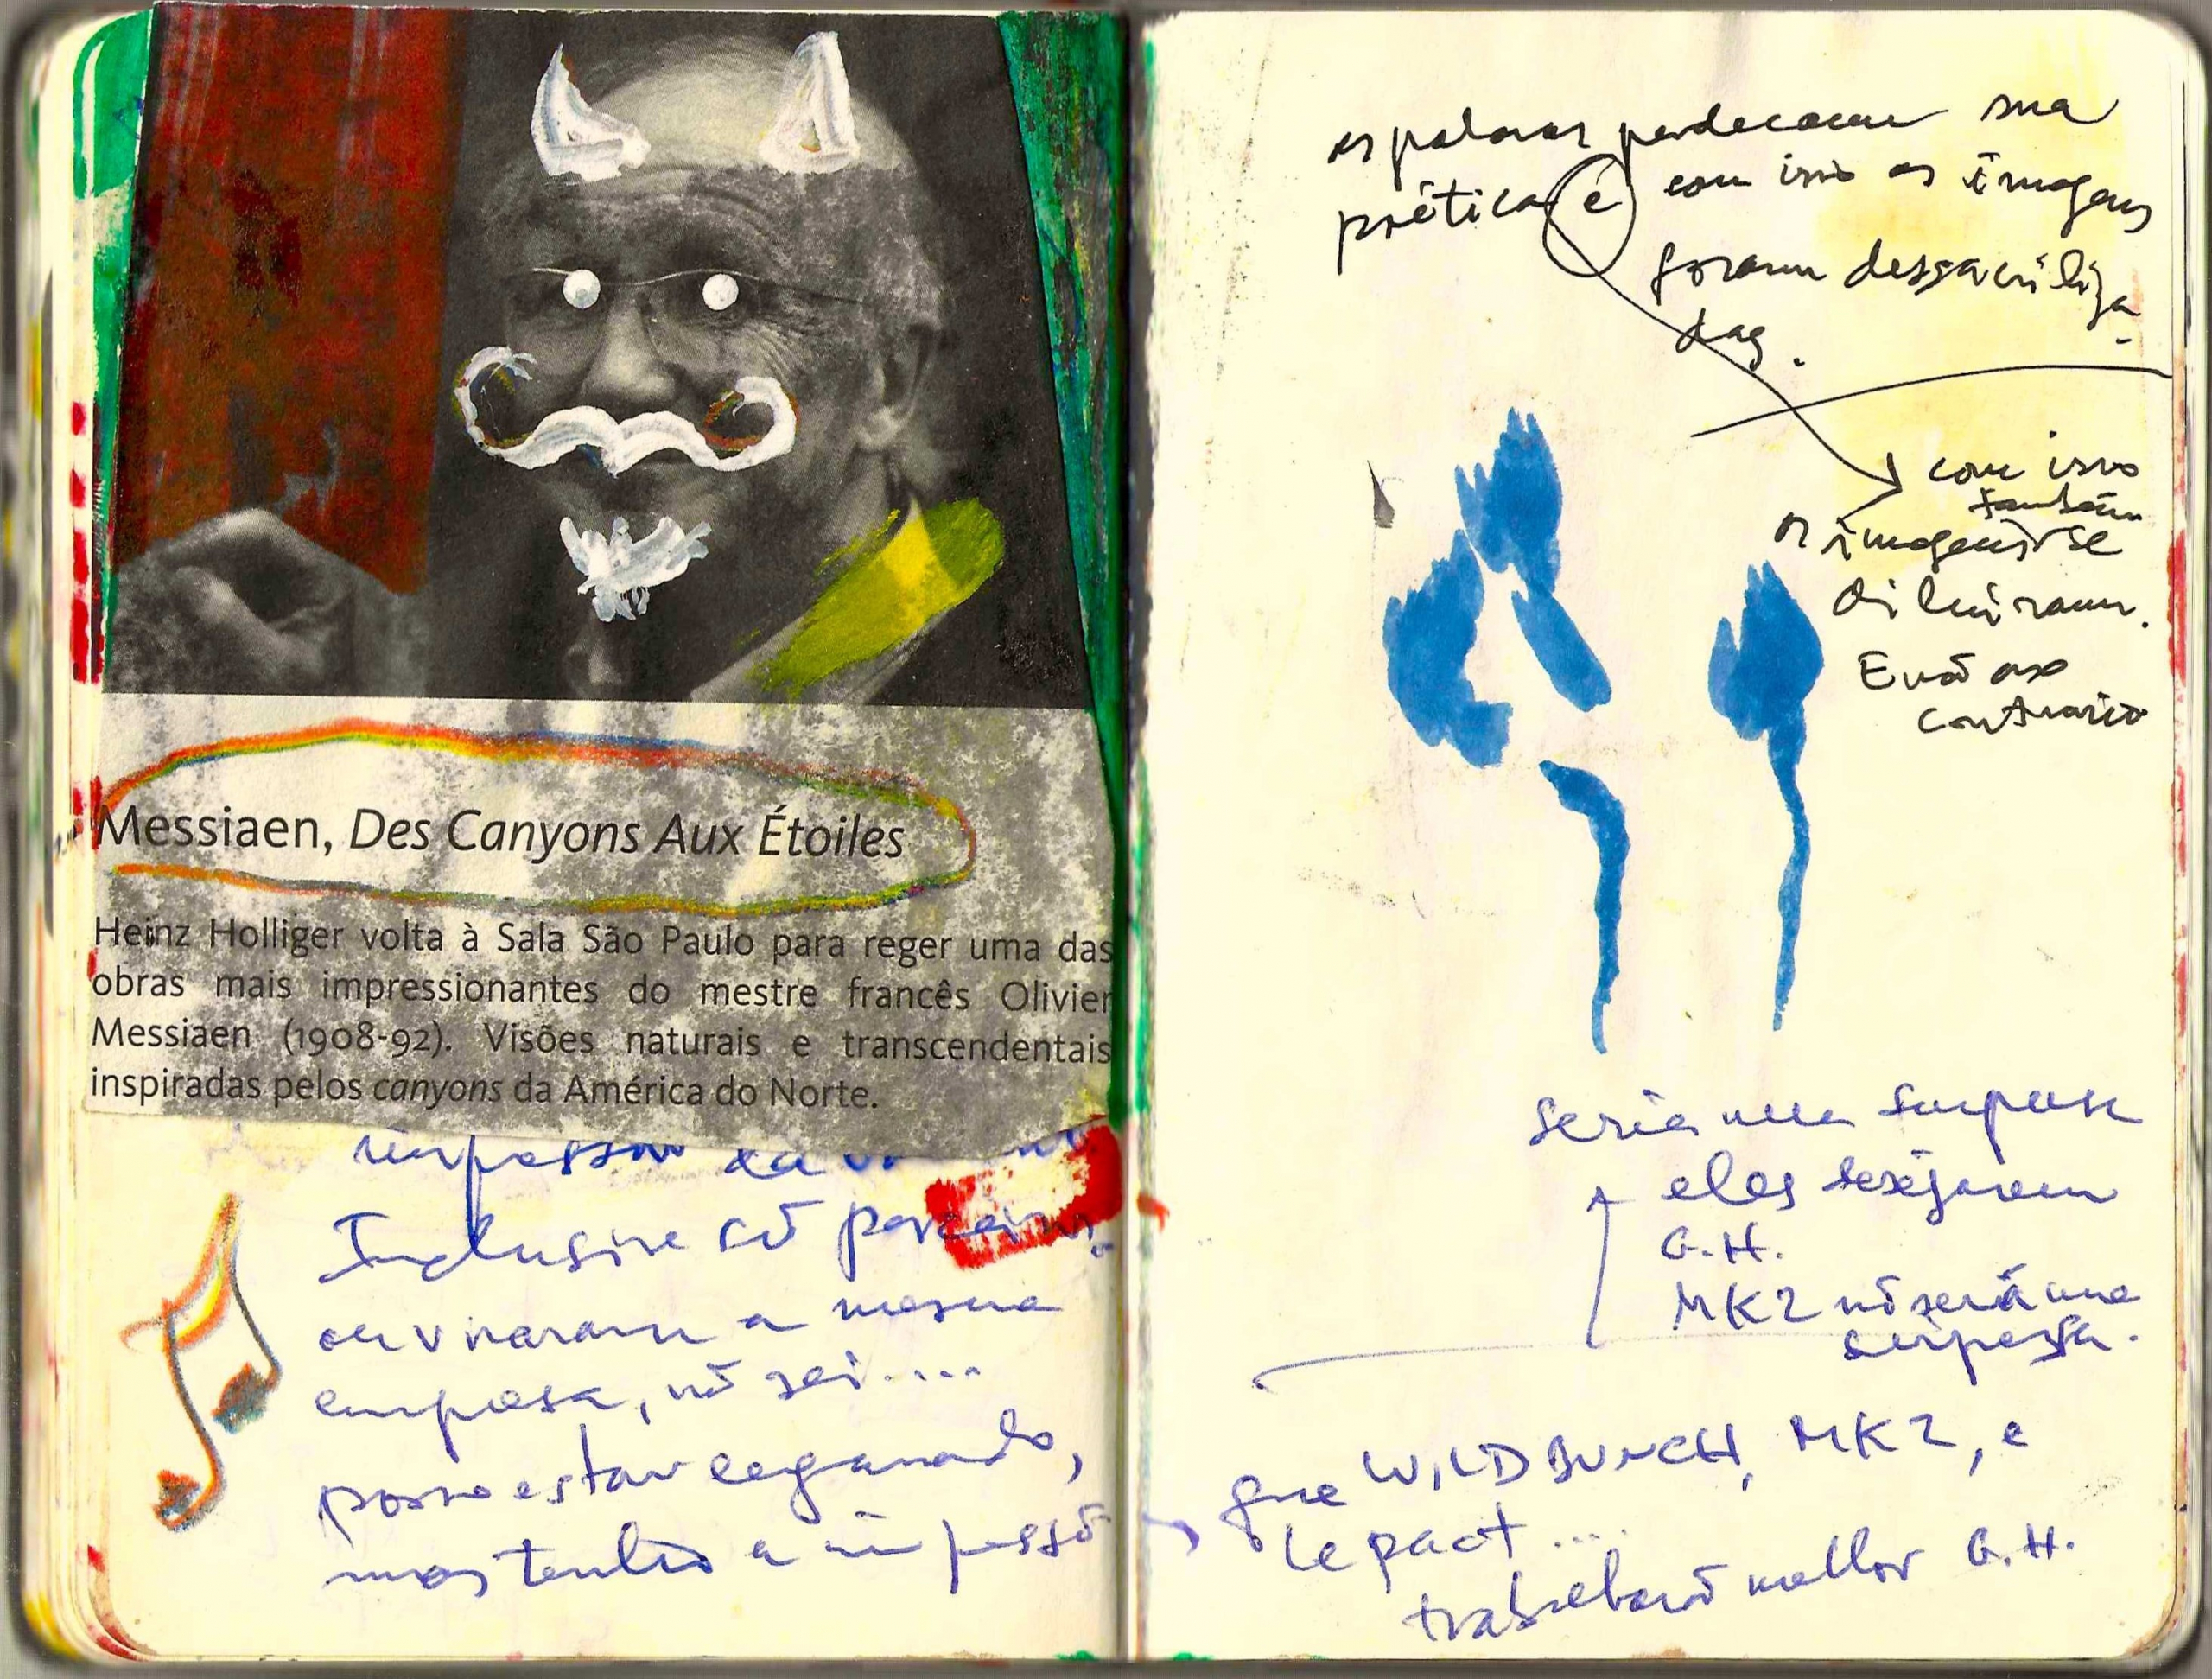 Messiaen, Des Canyons Aux Étoiles
Heinz Holliger volta à Sala São Paulo para reger uma das
obras mais impressionantes do mestre francês Olivier
Messiaen (1908-92). Visões naturais e transcendentais
inspiradas pelos canyons da América do Norte.
Inclusive só
ou viraram a mesma
empresa, nõ sei....
posso estar enganando,
mas tenho a
as palavras perderam sua
poética e com isso as imagens
foram dessacriliza
das.
com isso
também
as imagens se
diluiram.
E nõ ao
contrario
seria uma surpresa
eles desejarem
G.H.
MK2 nõ será uma
surpresa.
que WILD BUNCH, MK2, e
le pact ...
trabalharõ melhor G.H.